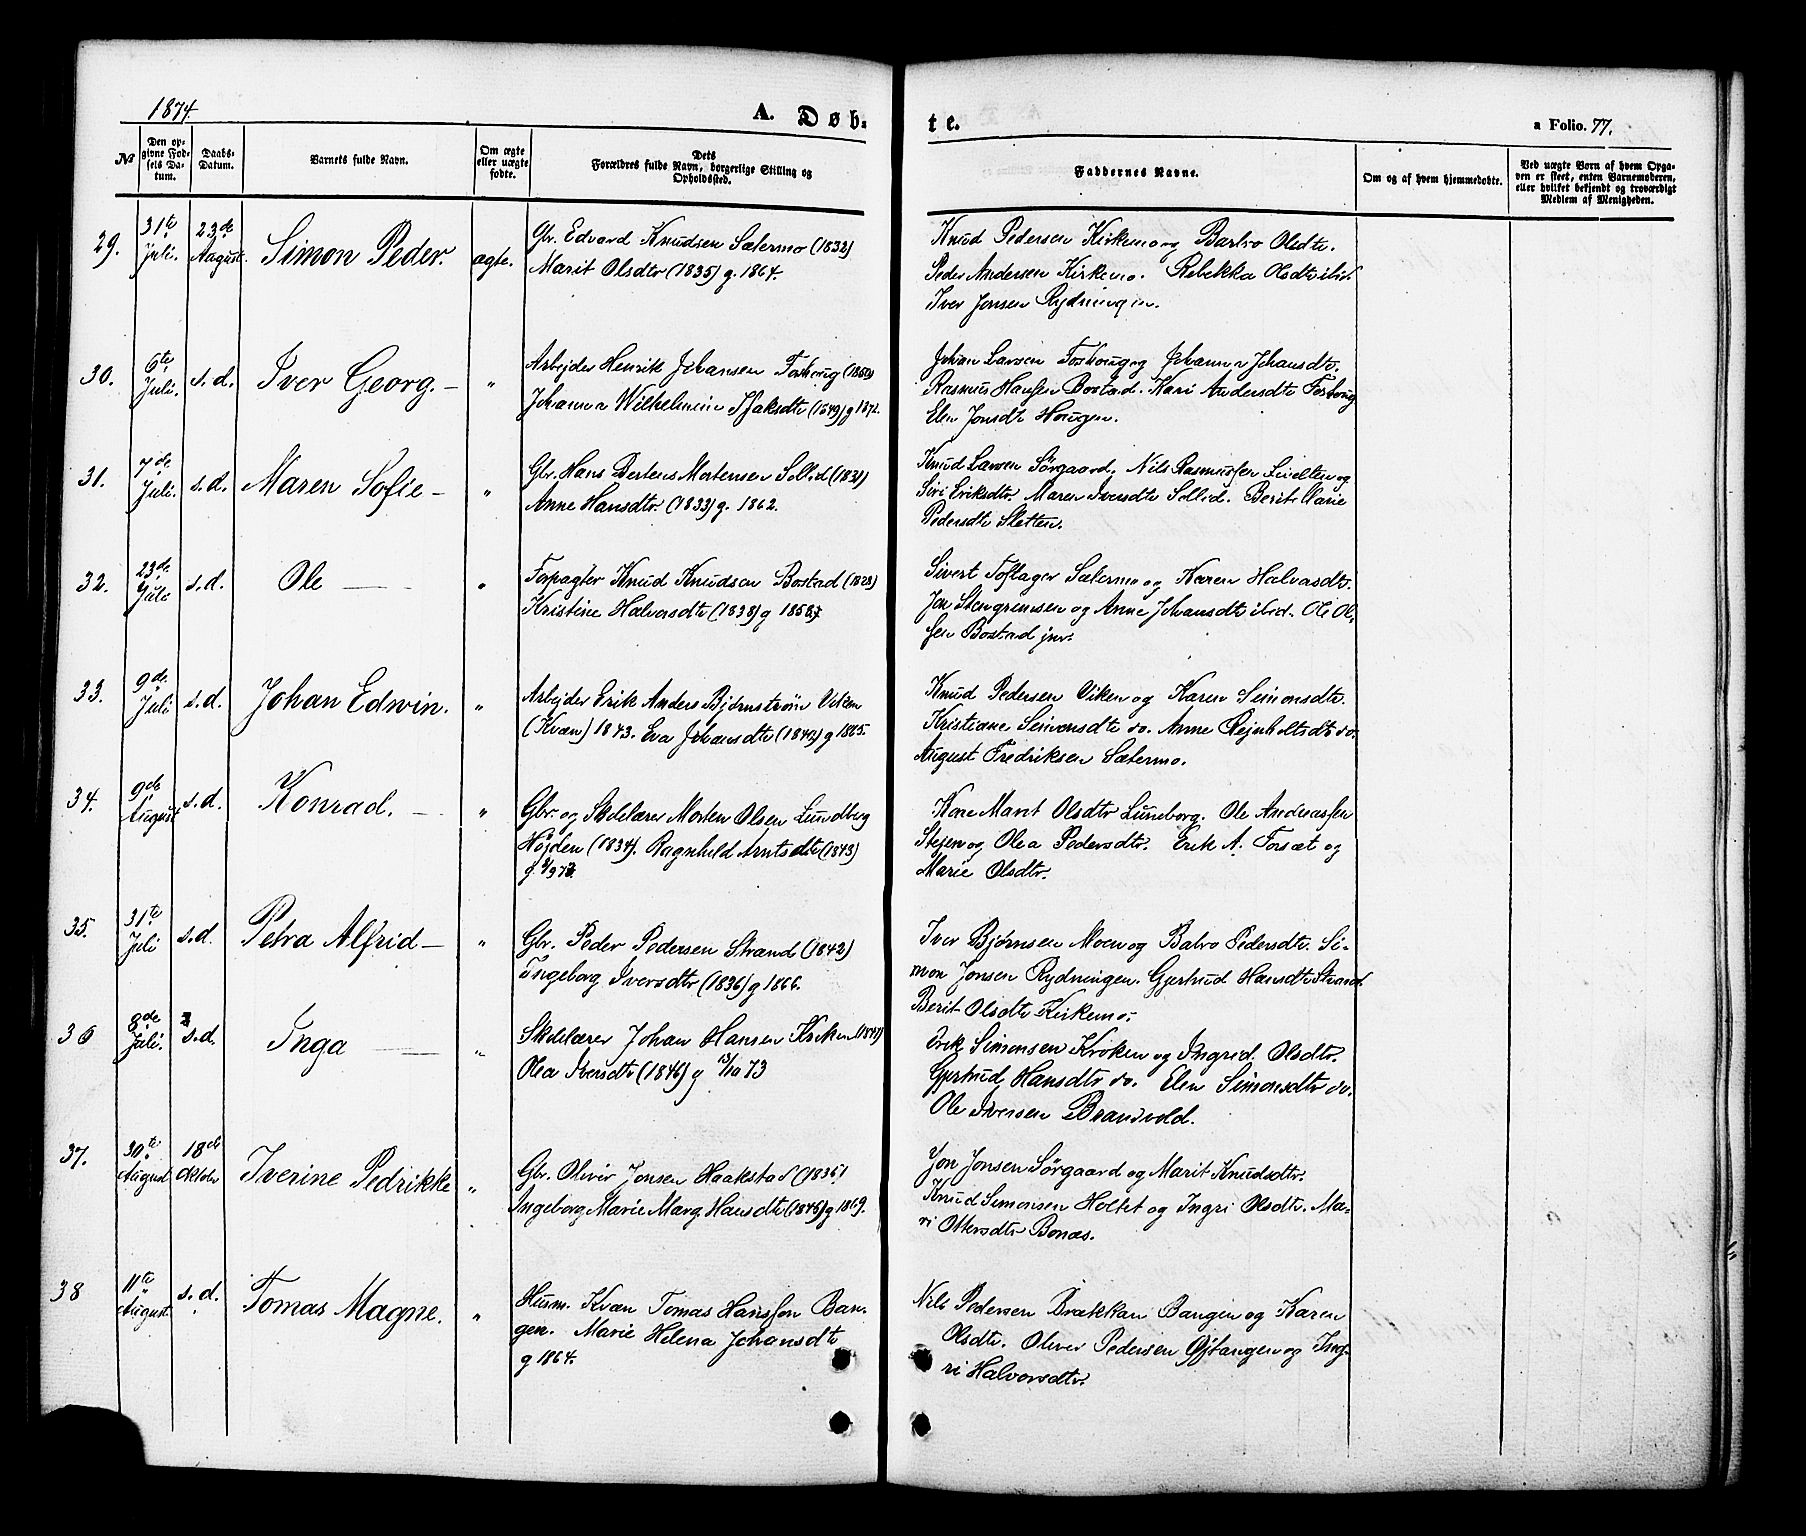 1874.
A. Døbte.
a Folio. 77.
№
Den opgivne Fødsels Datum.
Daabs-Datum.
Barnets fulde Navn.
Om ægte eller uægte fødte.
Dets Forældres fulde Navn, borgerlige Stilling og Opholdssted.
Faddernes Navne.
Om og af hvem hjemmedøbte.
Ved uægte Børn af hvem Opgaven er skeet, enten Barnemoderen, eller hvilket bekjendt og troværdigt Medlem af Menigheden.
29. 31te Juli. 23de August. Simon Peder. ægte.
Gbr. Edvard Knudsen Sætermo (1832)
Marit Olsdtr (1835) g. 1864.
Knud Pedersen Kirkemo og Barbro Olsdtr.
Peder Andersen Kirkemo. Rebekka Olsdtr ibid.
Iver Jonsen Rydningen.
30. 6te Juli. s.d. Iver Georg. — "
Arbejder Henrik Johansen Foshoug (1850)
Johanna Wilhelmine Isaksdtr (1849) g 1872.
Johan Larsen Foshoug og Johanna Johansdtr.
Rasmus Hansen Bostad. Kari Andersdtr Foshoug
Elen Jonsdtr Hougen.
31. 7de Juli. s.d. Maren Sofie — "
Gbr. Hans Berteus Mortensen Sollid (1831)
Anne Hansdtr (1833) g. 1862.
Knud Larsen Sørgaard, Nils Rasmussen og
Siri Eriksdtr Maren Iversdtr Sollid. Berit Marie
Pedersdtr Sletten.
32. 23de Juli s.d. Ole — "
Forpagter Knud Knudsen Bostad (1828)
Kristine Halvorsdtr (1838) g 1858
Sivert Toflager Sætermo og Karen Halvorsdtr.
Jon Stengrimsen og Anne Johansdtr ibid. Ole Ol-
sen Bostad jnr.
33. 9de Juli s.d. Johan Edwin. "
Arbejder Erik Anders Bjørnstrøm Viken
(Kvæn) 1843. Eva Johansdtr (1842) g 1865.
Knud Pedersen Viken og Karen Simonsdtr.
Kristiane Simonsdtr do. Anne Rejnholtsdtr do.
August Fredriksen Sætermo.
34. 9de August s.d. Konrad. — "
Gbr. og Skolelærer Morten Olsen Lundberg
Højden (1834). Ragnhild Arntsdtr (1843)
Kone Marit Olsdtr Luneborg. Ole Andreassen
Stejen og Olea Pedersdtr. Erik A. Forsæt og
Marie Olsdtr.
35. 31te Juli s.d. Petra Alfrid — "
Gbr. Peder Pedersen Strand (1842)
Ingeborg Iversdtr (1836) g 1866.
Iver Bjørnsen Moen og Balro Pedersdtr. Si-
mon Jonsen Rydningen. Gjertrud Hansdtr Strand
Berit Olsdtr Kirkemo.
36 8de Juli. s.d. Inga — "
Skolelærer Johan Hansen Kroken
Olea Iversdtr (1846) g 13/10 73
Erik Simonsen Kroken og Ingrid Olsdtr.
Gjertrud Hansdtr do. Elen Simonsdtr do.
Ole Iversen Brandvold.
37. 30te August 18de Oktober Iverine Pedrikke "
Gbr. Oliver Jonsen Haakstad (1835)
Ingeborg Marie Marg. Hansdtr (1845) g 1869.
Jon Jonsen Sørgaard og Marit Knudsdtr.
Knud Simonsen Holtet og Ingri Olsdtr. Ma-
ri Ottersdtr Bonæs.
38 11te August. s.d. Tomas Magne. "
Husm. Kvæn Tomas Hansson Ban-
gen. Marie Helena Johansdtr
g 1864.
Nils Pedersen Brækkan Bangen og Karen
Olsdtr. Oliver Pedersen og Ing-
ri Halvorsdtr.